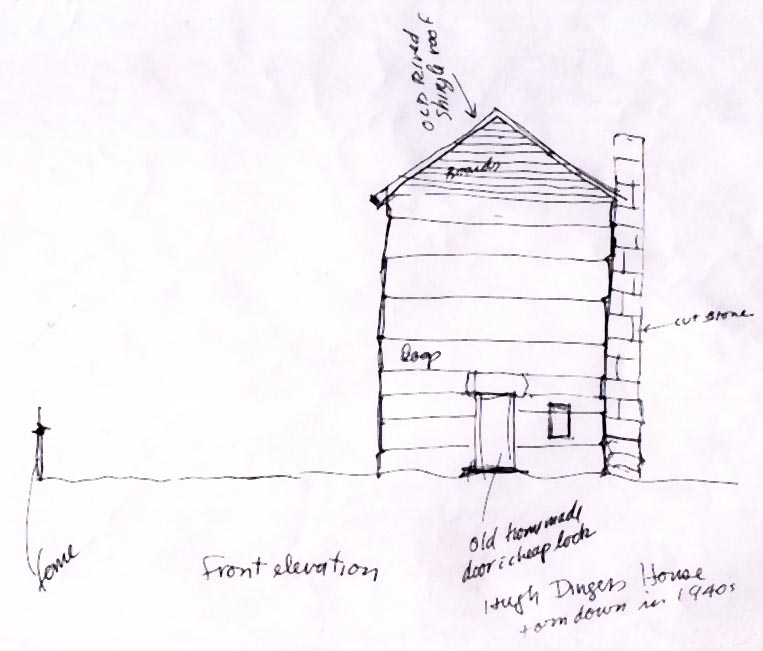 OLD RIVED
Shingle roof
Boards
logs
cut stone
fence
Front elevation
old homemade
door & cheap lock
Hugh Dingess House
torn down in 1940s